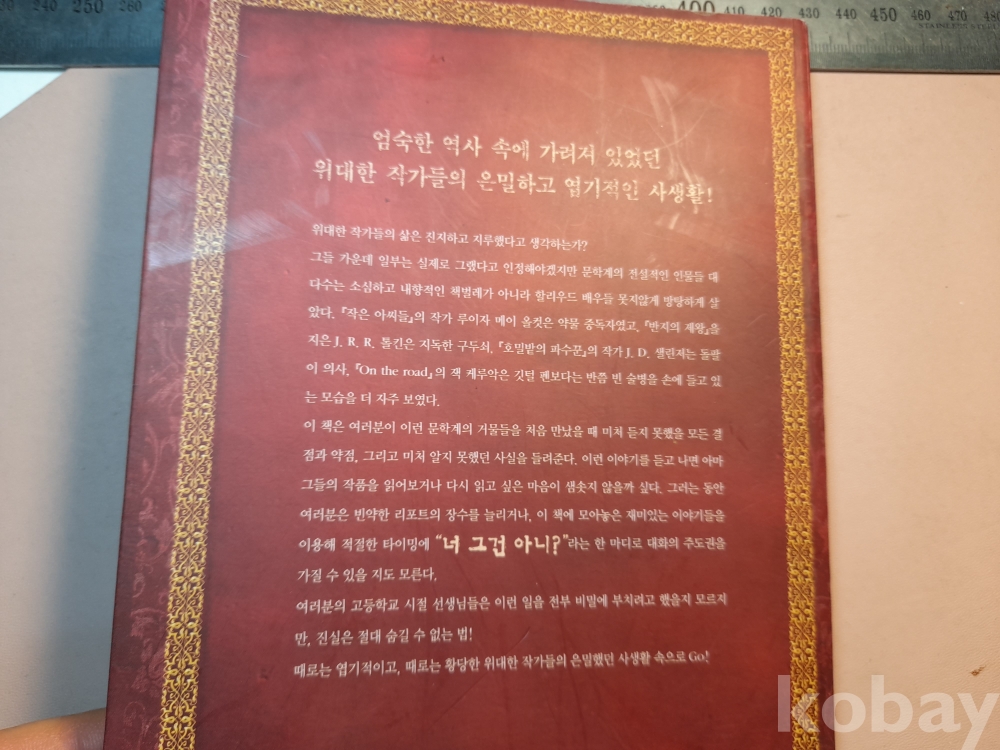 400 410 420 430 440 450 460 470 480
STAINLESS STEEL
엄숙한 역사 속에 가려져 있었던
위대한 작가들의 은밀하고 엽기적인 사생활!
위대한 작가들의 삶은 진지하고 지루했다고 생각하는가?
그들 가운데 일부는 실제로 그랬다고 인정해야겠지만 문학계의 전설적인 인물들 대
다수는 소심하고 내향적인 책벌레가 아니라 할리우드 배우들 못지않게 방탕하게 살
았다. 『작은 아씨들』의 작가 루이자 메이 올컷은 약물 중독자였고, 『반지의 제왕』을
지은 J. R. R. 톨킨은 지독한 구두쇠, 『호밀밭의 파수꾼』의 작가 J. D. 샐린저는 돌팔
이 의사, 『On the road』의 잭 케루악은 깃털 펜보다는 반쯤 빈 술병을 손에 들고 있
는 모습을 더 자주 보였다.
이 책은 여러분이 이런 문학계의 거물들을 처음 만났을 때 미처 듣지 못했을 모든 결
점과 약점, 그리고 미처 알지 못했던 사실을 들려준다. 이런 이야기를 듣고 나면 아마
그들의 작품을 읽어보거나 다시 읽고 싶은 마음이 샘솟지 않을까 싶다. 그러는 동안
여러분은 빈약한 리포트의 장수를 늘리거나, 이 책에 모아놓은 재미있는 이야기들을
이용해 적절한 타이밍에 "너 그건 아니?"라는 한 마디로 대화의 주도권을
가질 수 있을 지도 모른다.
여러분의 고등학교 시절 선생님들은 이런 일을 전부 비밀에 부치려고 했을지 모르지
만, 진실은 절대 숨길 수 없는 법!
때로는 엽기적이고, 때로는 황당한 위대한 작가들의 은밀했던 사생활 속으로 Go!
kobay